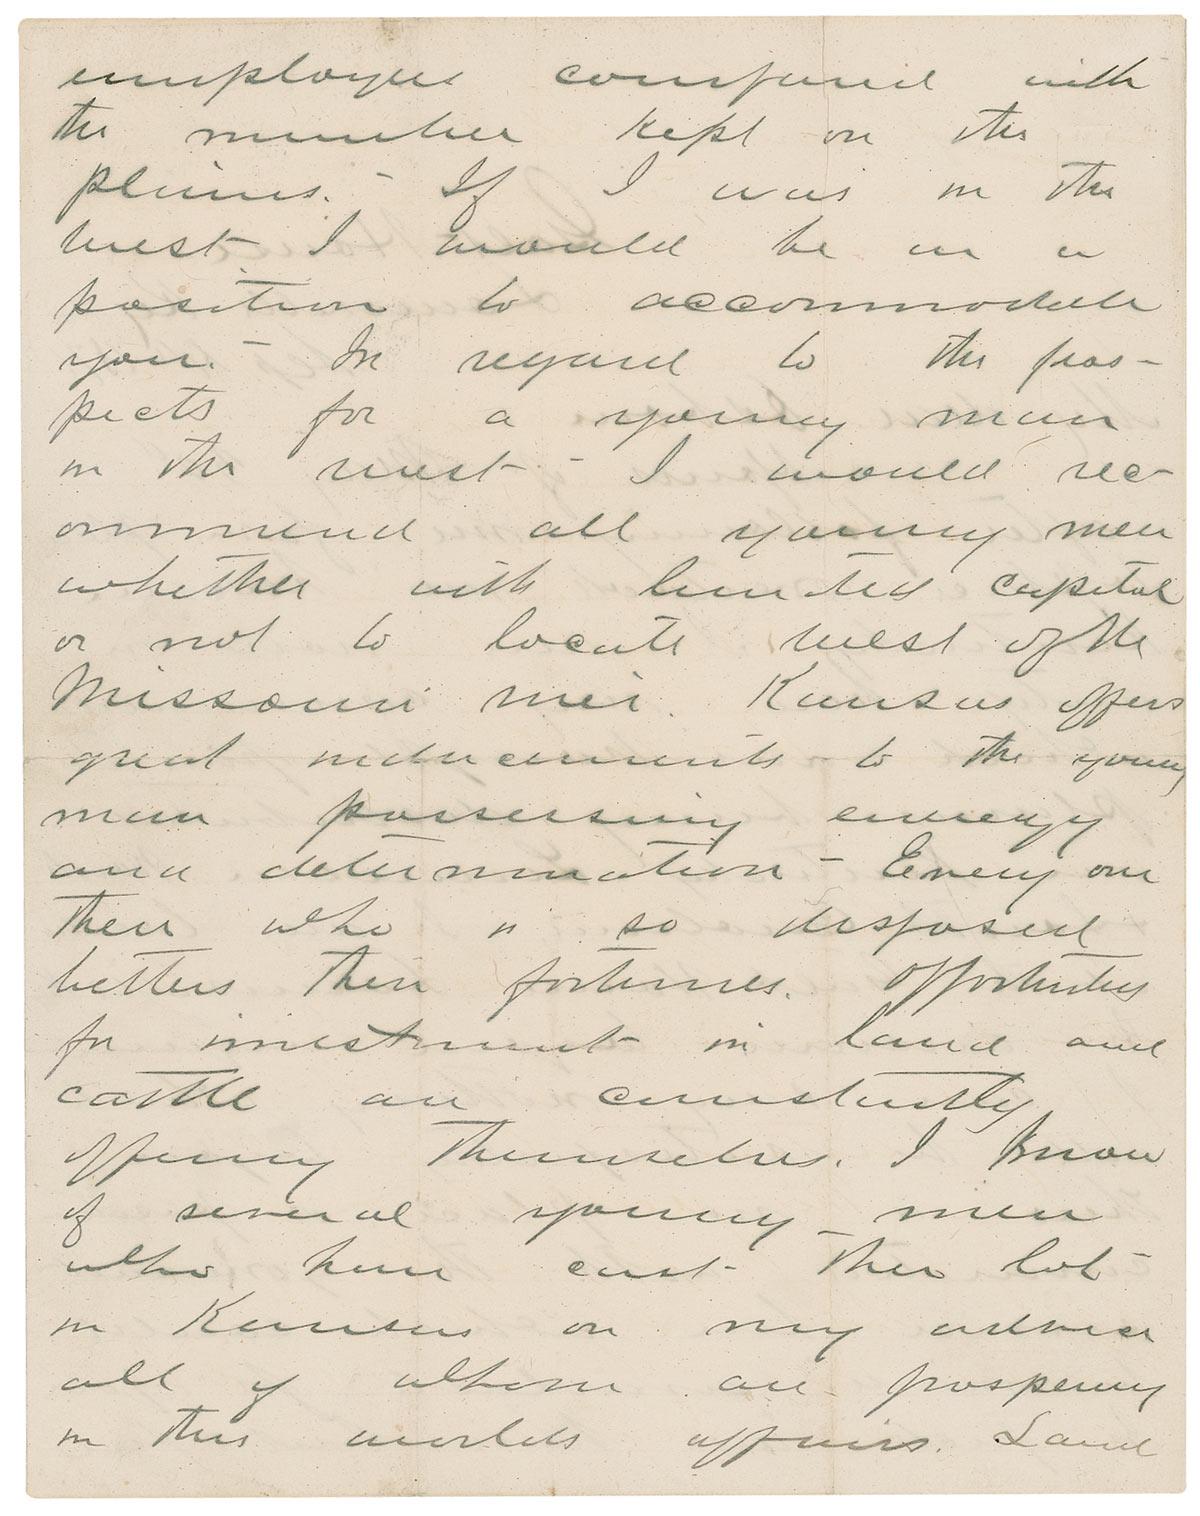 employees compared with
the number kept on the
plains. - If I was in the
west I would be in a
position to accommodate
you. - In regard to the pros-
pects for a young man
in the west - I would rec-
ommend all young men
whether with limited capital
or not to locate west of the
Missouri river. Kansas offers
great inducements to the young
man possessing energy
and determination - Every one
then who is so disposed
betters their fortunes. Opportunities
for investment in land and
cattle are constantly
offering themselves. I know
of several young men
who have cast their lot
in Kansas on my advice
all of whom are prospering
in this worlds affairs. Land